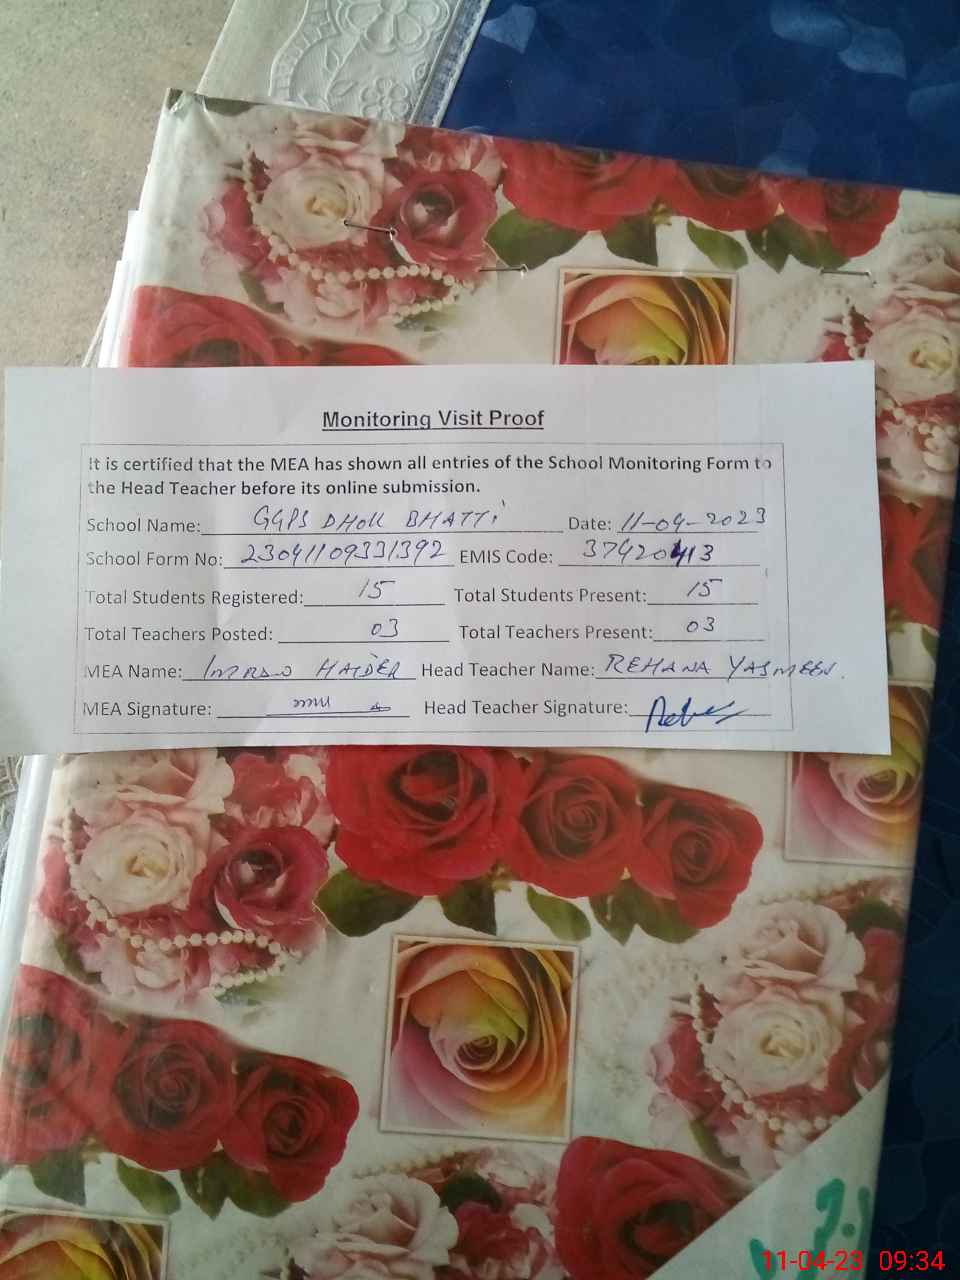 Monitoring Visit Proof
It is certified that the MEA has shown all entries of the School Monitoring Form to
the Head Teacher before its online submission.
School Name: GGPS DHOK BHATTI Date: 11-04-2023
School Form No: 23041109331392 EMIS Code: 37420413
Total Students Registered: 15 Total Students Present: 15
Total Teachers Posted: 03 Total Teachers Present: 03
MEA Name: IMRAN HAIDER Head Teacher Name: REHANA YASMEEN.
MEA Signature: Head Teacher Signature:
11-04-23 09:34